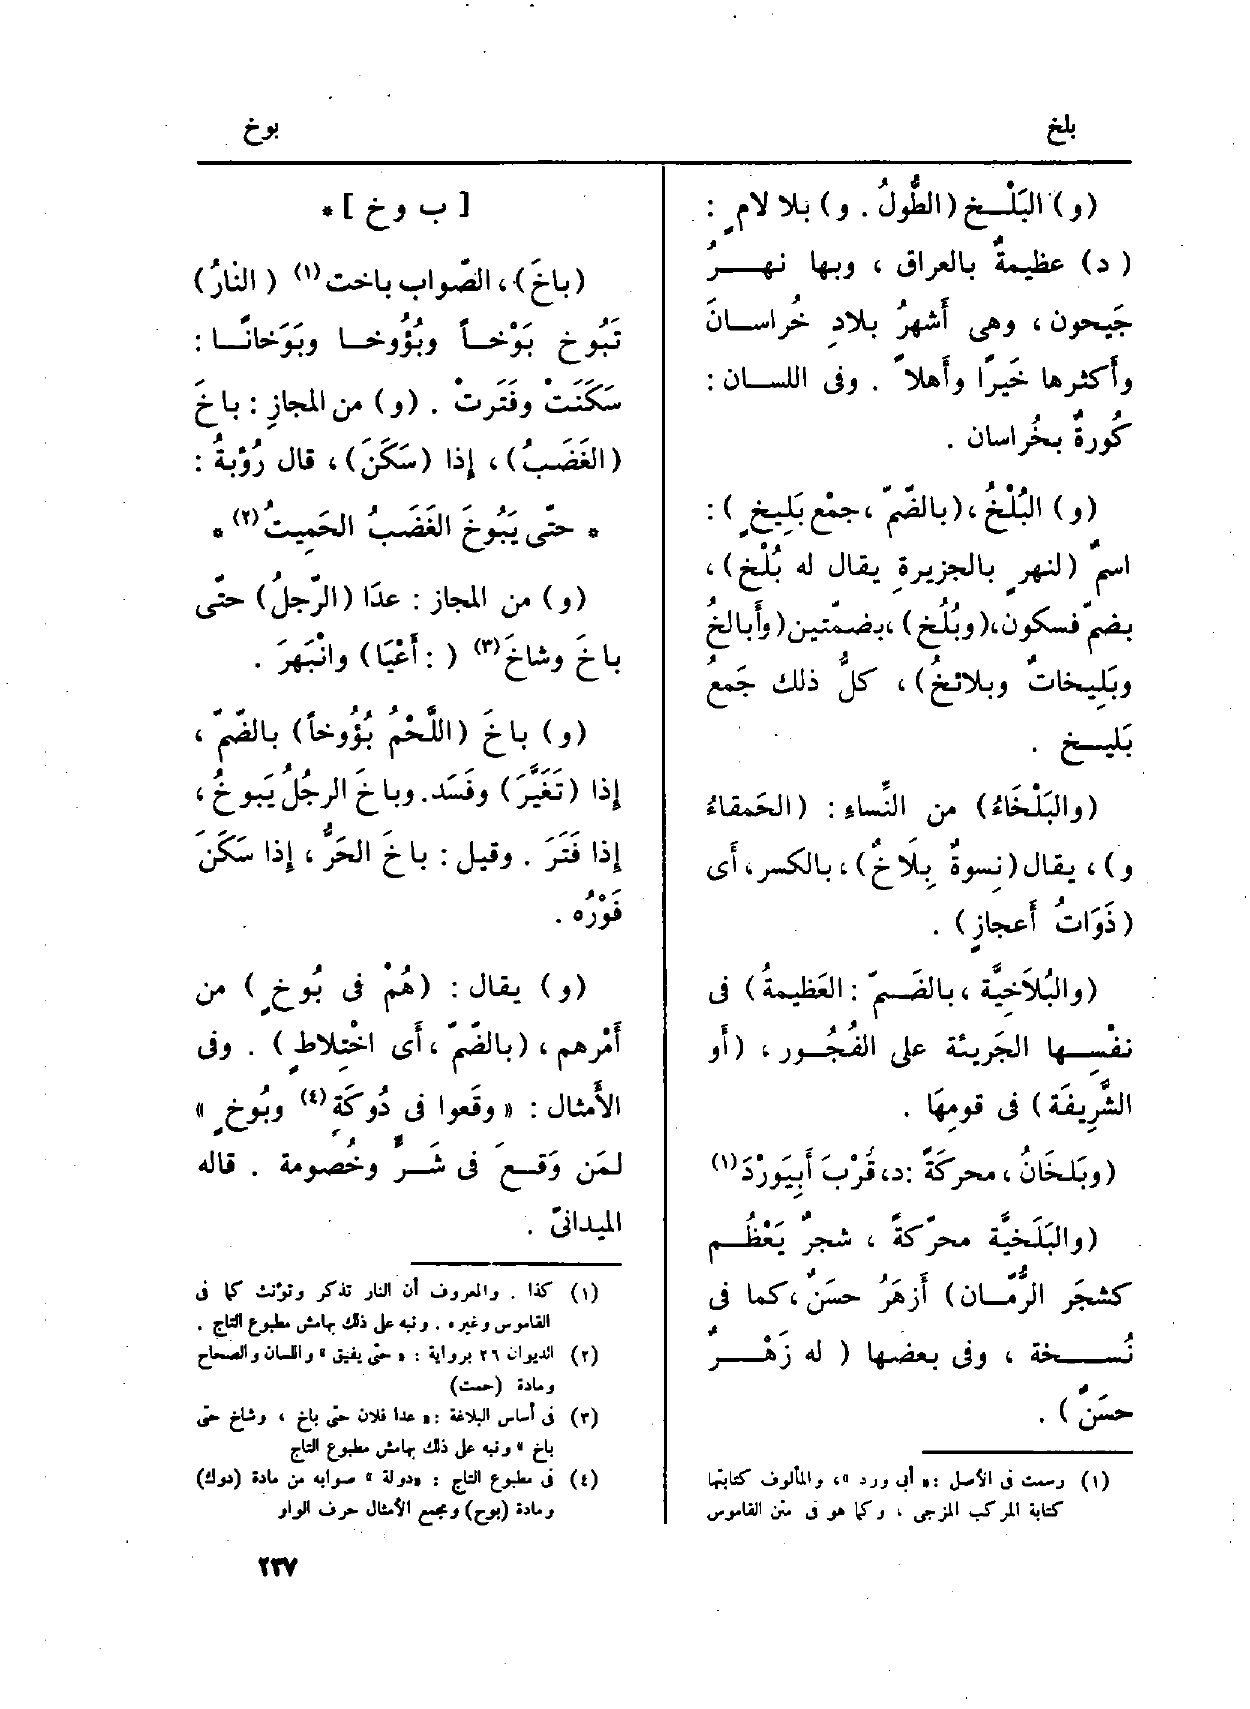 بلخ
بوخ
(و) البَلْــخ (الطُّولُ . و) بلا لامٍ :
(د) عظيمةٌ بالعراق ، وبها نهــرُ
جَيحون ، وهى أَشهرُ بلادِ خُراسـانَ
وأَكثرها خَيرًا وأَهلاً . وفى اللسـان :
كُورةٌ بخُراسان .
(و) البُلْخُ ،(بالضّمّ ، جمْع بَلِيخٍ ) :
اسمٌ (لنهرٍ بالجزيرةِ يقال له بُلْخ) ،
بضمّ فسكون،(وبُلُخ) ،بضمّتين(وأَبالخُ
وبَلِيخاتٌ وبلائخُ) ، كلُّ ذلك جَمعُ
بَليـخ .
(والبَلْخَاءُ) من النِّساءِ : (الحَمقاءُ
و) ، يقال (نِسوةٌ بِلَاخٌ) ، بالكسر ، أَى
(ذَوَاتُ أَعجازٍ) .
(والبُلَاخِيَّة ، بالضّـمّ : العَظيمةُ) فى
نفْسِـها الجَريئة على الفُجُـور ، (أَو
الشَّرِيفَة) فى قومِهَا .
(وبَلخَانُ ، محركَةً :د، قُرْبَ أَبِيَورْدَ (١)
(والبَلَخيَّة محرّكةً ، شجرٌ يَعْظُـم
كشجَر الرُّمّـان) أَزهَرُ حسَنٌ ، كما فى
نُســخة ، وفى بعضها ( له زَهْــرٌ
حسَنٌ ) .
(١) رسمت فى الأصل :« أبى ورد »، والمألوف كتابتها
كتابة المركب المزجى ، وكما هو فى متن القاموس
[ ب وخ ] *
(باخَ) ، الصّواب باخت (١) ( النارُ)
تَبُوخ بَوْخـاً وبُؤُوخـا وبَوَخانًـا :
سَكَنَتْ وفَتَرتْ . (و) من المجازِ : باخَ
(الغَضَبُ) ، إذا (سَكَنَ) ، قال رُؤْبةُ :
* حتّى يَبُوخَ الغَضَبُ الحَمِيتُ (٢) *
(و) من المجاز : عدَا (الرّجلُ) حتّى
باخَ وشاخَ (٣) ( : أَعْيَا) وانْبَهرَ .
(و) باخَ (اللَّحْمُ بُؤُوخاً) بالضّمّ ،
إذا (تَغَيَّرَ) وفَسَد. وباخَ الرجُلُ يَبوخُ ،
إذا فَتَرَ . وقيل : باخَ الحَرُّ ، إذا سَكَنَ
فَوْرُه .
(و) يقال : (هُمْ فى بُوخٍ ) من
أَمْرهم ، (بالضّمّ ، أَى اخْتِلاطٍ ) . وفى
الأَمثال : « وقَعوا فى دُوكَةٍ (٤) وبُوخٍ »
لمَن وَقـعَ فى شَـرٍّ وخُصومة . قاله
الميدانىّ .
(١) كذا . والمعروف أن النار تذكر وتؤنث كما فى
القاموس وغيره . ونبه على ذلك بهامش مطبوع التاج .
(٢) الديوان ٢٦ برواية : « حتى يفيق » واللسان والصحاح
ومادة (حمت)
(٣) فى أساس البلاغة :« عدا فلان حتى باخ ، وشاخ حتى
باخ » ونبه على ذلك بهامش مطبوع التاج
(٤) فى مطبوع التاج : «دولة » صوابه من مادة (دوك)
ومادة (بوح) ومجمع الأمثال حرف الواو
٢٣٧